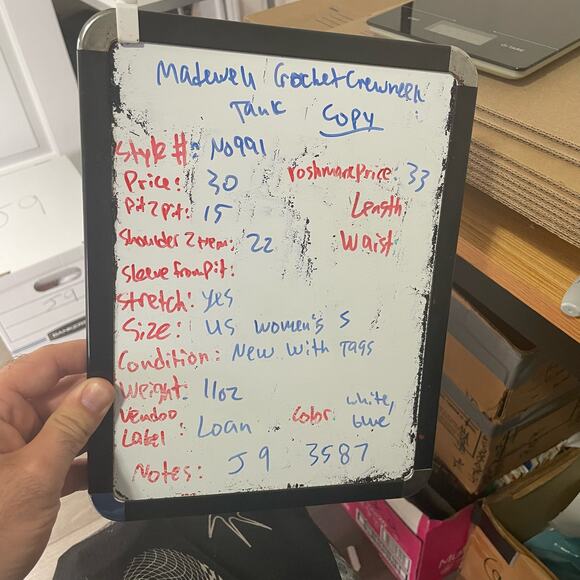 Madewell Crochet Crewneck
Tank Copy
Style #: NO991
Price: 30 Poshmark Price: 33
Pit 2 pit: 15 Length
Shoulder 2 Hem: 22 Waist
Sleeve from Pit:
Stretch: yes
Size: US Women's S
Condition: New With Tags
Weight: 11oz
Vendoo Label: Loan Color: white, blue
Notes: J9 3587
J9
BANKERS
TARE